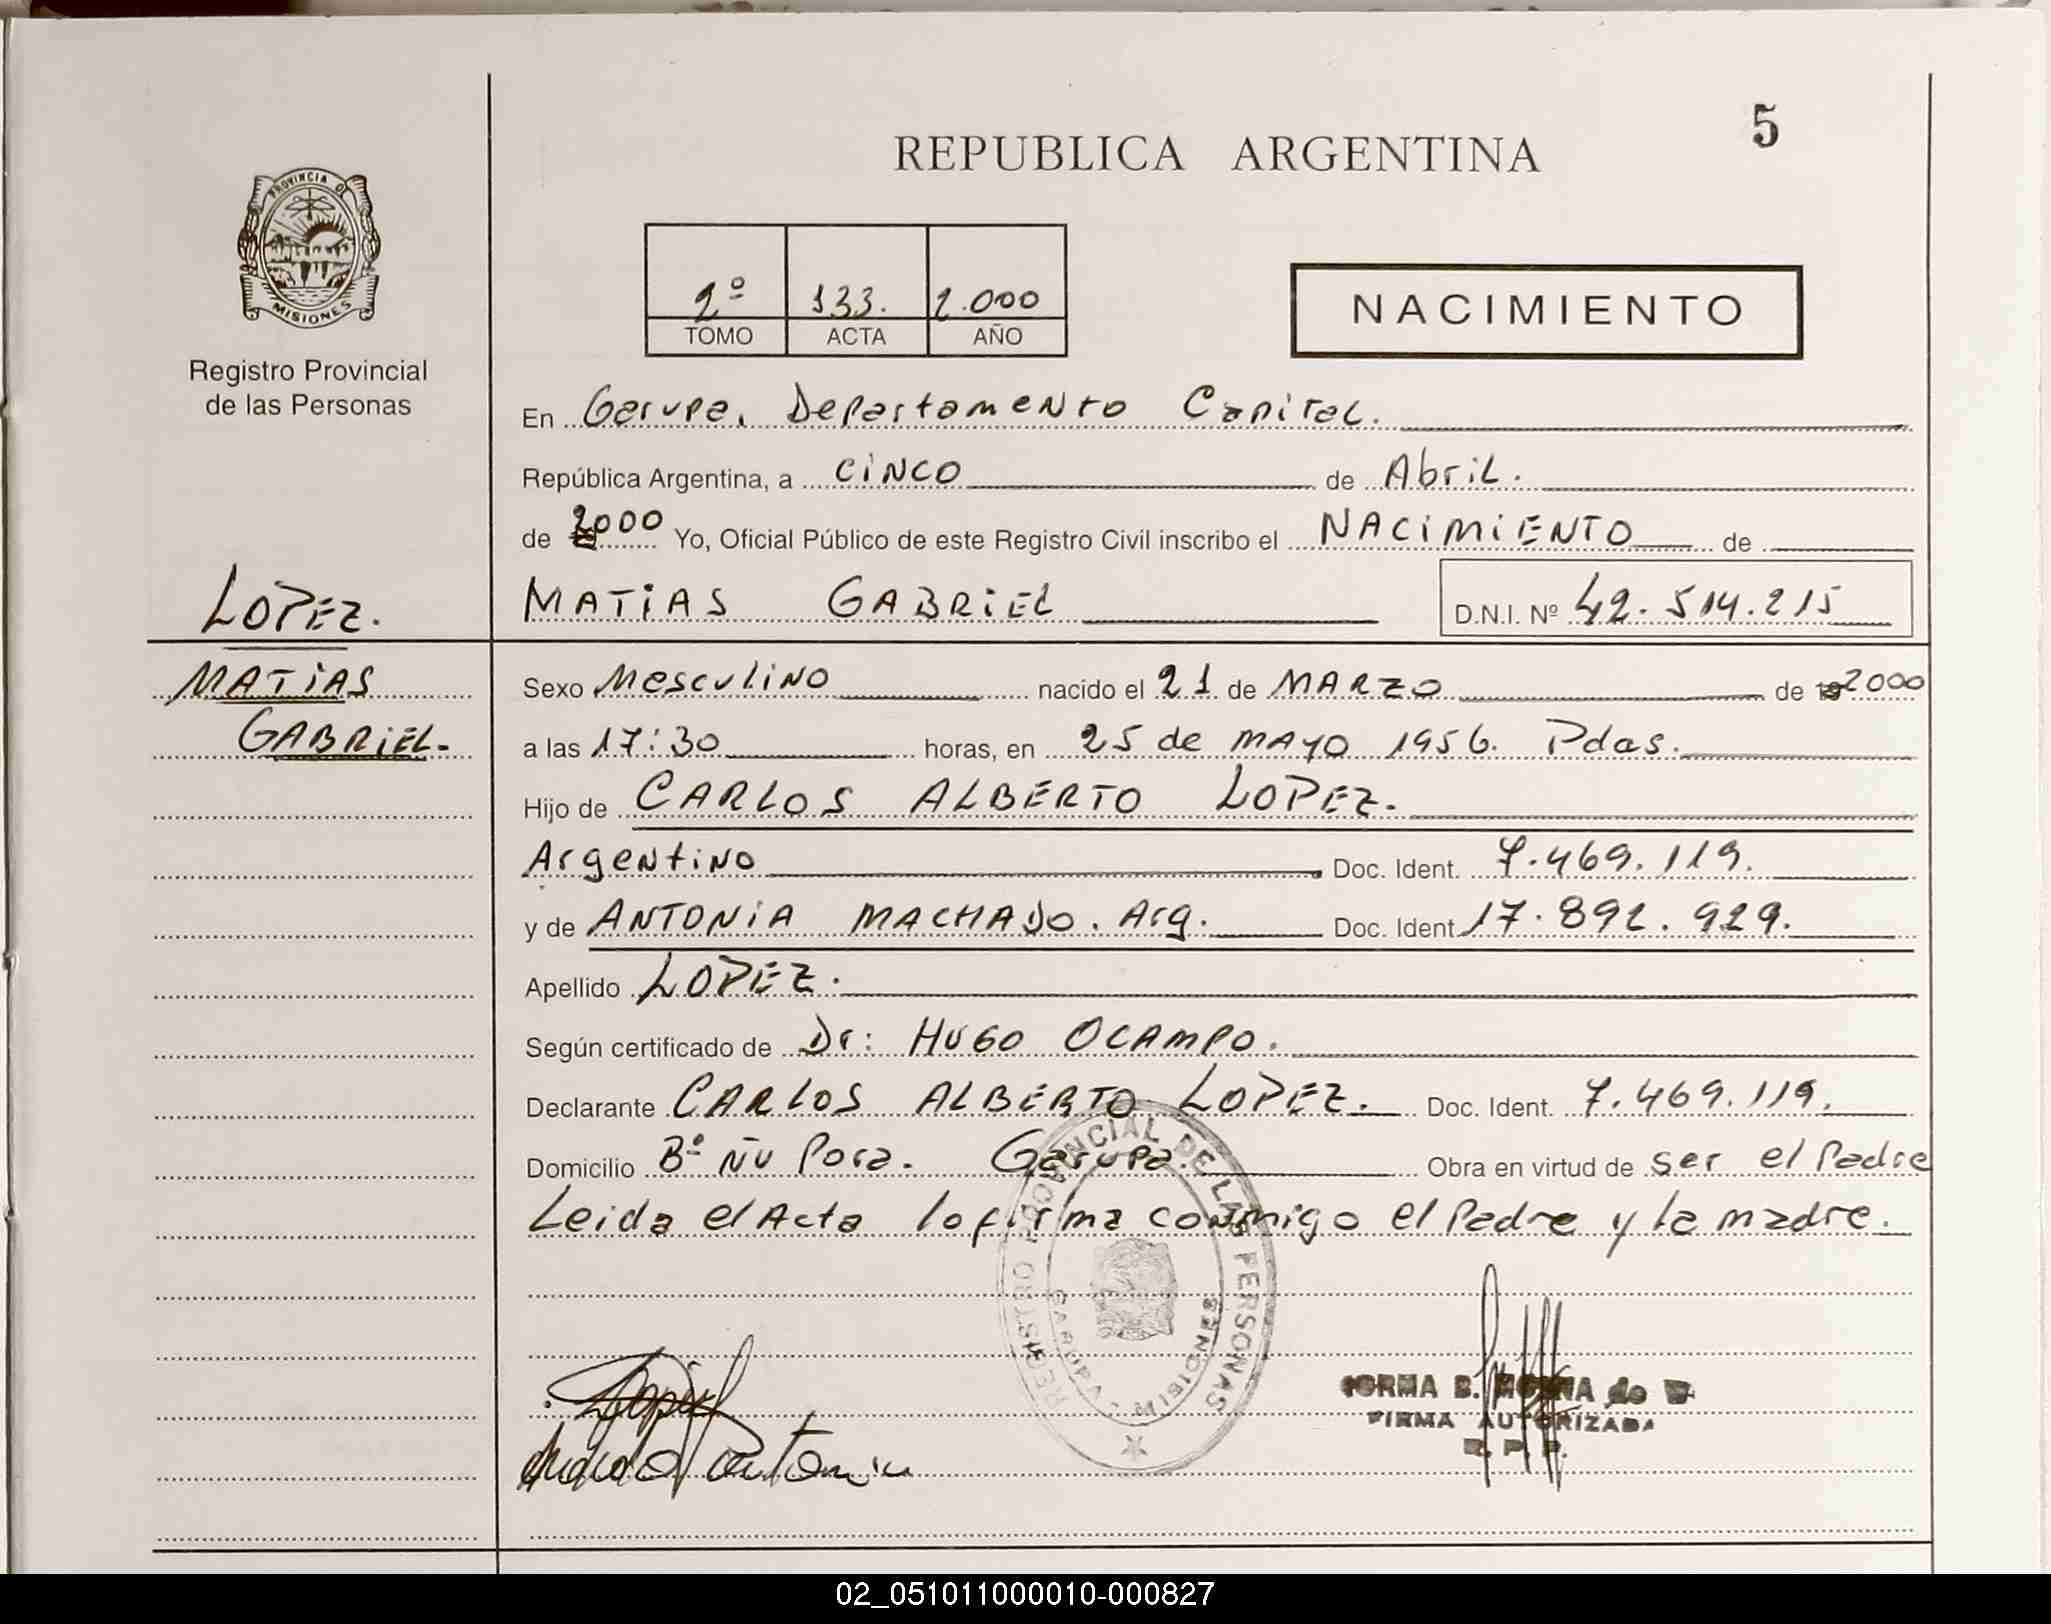 5
REPUBLICA ARGENTINA
PROVINCIA DE
MISIONES
Registro Provincial
de las Personas
2º 133. 2.000
TOMO ACTA AÑO
NACIMIENTO
En Garupa. Departamento Capital.
República Argentina, a CINCO de Abril.
de 2000 Yo, Oficial Público de este Registro Civil inscribo el NACIMIENTO de
LOPEZ.
MATIAS GABRIEL
D.N.I. Nº 42.514.215
MATIAS
GABRIEL.
Sexo Masculino nacido el 21 de MARZO de 2000
a las 17:30 horas, en 25 de MAYO 1956. Pdas.
Hijo de CARLOS ALBERTO LOPEZ.
Argentino Doc. Ident. 7.469.119.
y de ANTONIA MACHADO. Arg. Doc. Ident 17.892.929.
Apellido LOPEZ.
Según certificado de Dr: HUGO OCAMPO.
Declarante CARLOS ALBERTO LOPEZ. Doc. Ident. 7.469.119.
Domicilio Bº ÑU Pora. Garupa. Obra en virtud de ser el Padre
Leida el Acta lo firma conmigo el Padre y la madre.
REGISTRO PROVINCIAL DE LAS PERSONAS
GARUPA - MISIONES
NORMA B. de
FIRMA AUTORIZADA
R. P. P.
Antonia
02_051011000010-000827